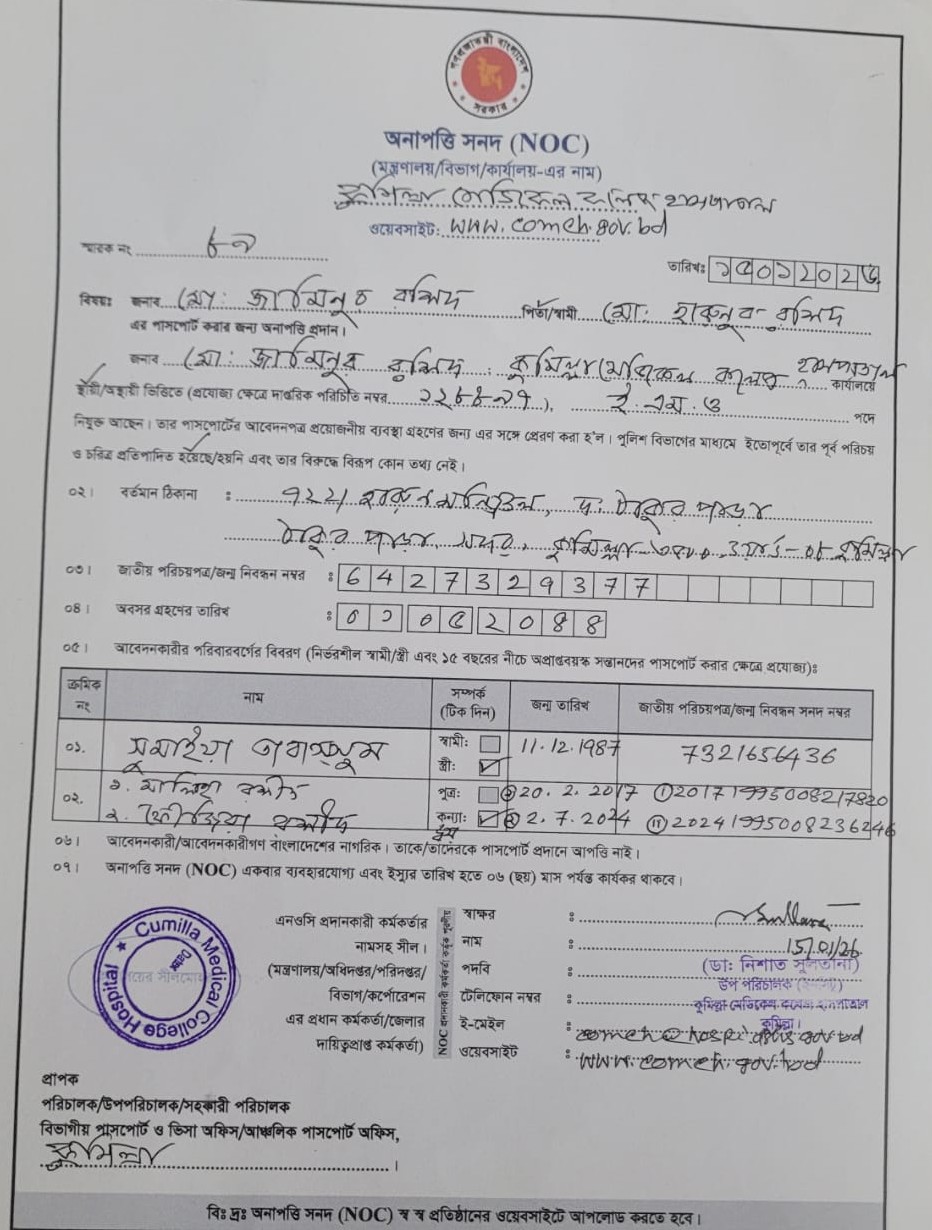 গণপ্রজাতন্ত্রী বাংলাদেশ
সরকার
অনাপত্তি সনদ (NOC)
(মন্ত্রণালয়/বিভাগ/কার্যালয়-এর নাম)
কুমিল্লা মেডিকেল কলেজ হাসপাতাল
ওয়েবসাইট: www.comch.gov.bd
স্মারক নং ৮৯
তারিখঃ ১৫০১২০২৬
বিষয়ঃ জনাব মো: জামিনুর রশিদ পিতা/স্বামী মো: হারুনুর-রশিদ
এর পাসপোর্ট করার জন্য অনাপত্তি প্রদান।
জনাব মো: জামিনুর রশিদ কুমিল্লা মেডিকেল কলেজ হাসপাতাল কার্যালয়ে
স্থায়ী/অস্থায়ী ভিত্তিতে (প্রযোজ্য ক্ষেত্রে দাপ্তরিক পরিচিতি নম্বর ), ই.এম.ও পদে
নিযুক্ত আছেন। তার পাসপোর্টের আবেদনপত্র প্রয়োজনীয় ব্যবস্থা গ্রহণের জন্য এর সঙ্গে প্রেরণ করা হ'ল। পুলিশ বিভাগের মাধ্যমে ইতোপূর্বে তার পূর্ব পরিচয়
ও চরিত্র প্রতিপাদিত হয়েছে/হয়নি এবং তার বিরুদ্ধে বিরূপ কোন তথ্য নেই।
০২। বর্তমান ঠিকানা : ৭২২/ দ: ঠাকুর পাড়া
ঠাকুর পাড়া, সদর, কুমিল্লা-৩৫০০ ওয়ার্ড-০৮ কুমিল্লা
০৩। জাতীয় পরিচয়পত্র/জন্ম নিবন্ধন নম্বর : 6427329377
০৪। অবসর গ্রহণের তারিখ : ০১০৫২০৪৪
০৫। আবেদনকারীর পরিবারবর্গের বিবরণ (নির্ভরশীল স্বামী/স্ত্রী এবং ১৫ বছরের নীচে অপ্রাপ্তবয়স্ক সন্তানদের পাসপোর্ট করার ক্ষেত্রে প্রযোজ্য):
ক্রমিক নং নাম সম্পর্ক (টিক দিন) জন্ম তারিখ জাতীয় পরিচয়পত্র/জন্ম নিবন্ধন সনদ নম্বর
০১. সুমাইয়া তাবাস্সুম স্বামী: স্ত্রী: 11.12.1987 7321656436
০২. ১. মালিহা রশীদ পুত্র: 20.2.2017 20171995008217820
২. রশীদ কন্যা: 2.7.2024 20241995008236246
০৬। আবেদনকারী/আবেদনকারীগণ বাংলাদেশের নাগরিক। তাকে/তাঁদেরকে পাসপোর্ট প্রদানে আপত্তি নাই।
০৭। অনাপত্তি সনদ (NOC) একবার ব্যবহারযোগ্য এবং ইস্যুর তারিখ হতে ০৬ (ছয়) মাস পর্যন্ত কার্যকর থাকবে।
Cumilla Medical College Hospital
এনওসি প্রদানকারী কর্মকর্তার
নামসহ সীল।
(মন্ত্রণালয়/অধিদপ্তর/পরিদপ্তর/
বিভাগ/কর্পোরেশন
এর প্রধান কর্মকর্তা/জেলার
দায়িত্বপ্রাপ্ত কর্মকর্তা)
NOC প্রদানকারী কর্মকর্তা কর্তৃক পূরণীয়
স্বাক্ষর :
নাম : 15/01/26
পদবি : (ডা: নিশাত সুলতানা)
উপ পরিচালক
টেলিফোন নম্বর : কুমিল্লা মেডিকেল কলেজ হাসপাতাল
কুমিল্লা।
ই-মেইল : comch@hospi.dghs.gov.bd
ওয়েবসাইট : www.comch.gov.bd
প্রাপক
পরিচালক/উপপরিচালক/সহকারী পরিচালক
বিভাগীয় পাসপোর্ট ও ভিসা অফিস/আঞ্চলিক পাসপোর্ট অফিস,
কুমিল্লা।
বিঃ দ্রঃ অনাপত্তি সনদ (NOC) স্ব স্ব প্রতিষ্ঠানের ওয়েবসাইটে আপলোড করতে হবে।